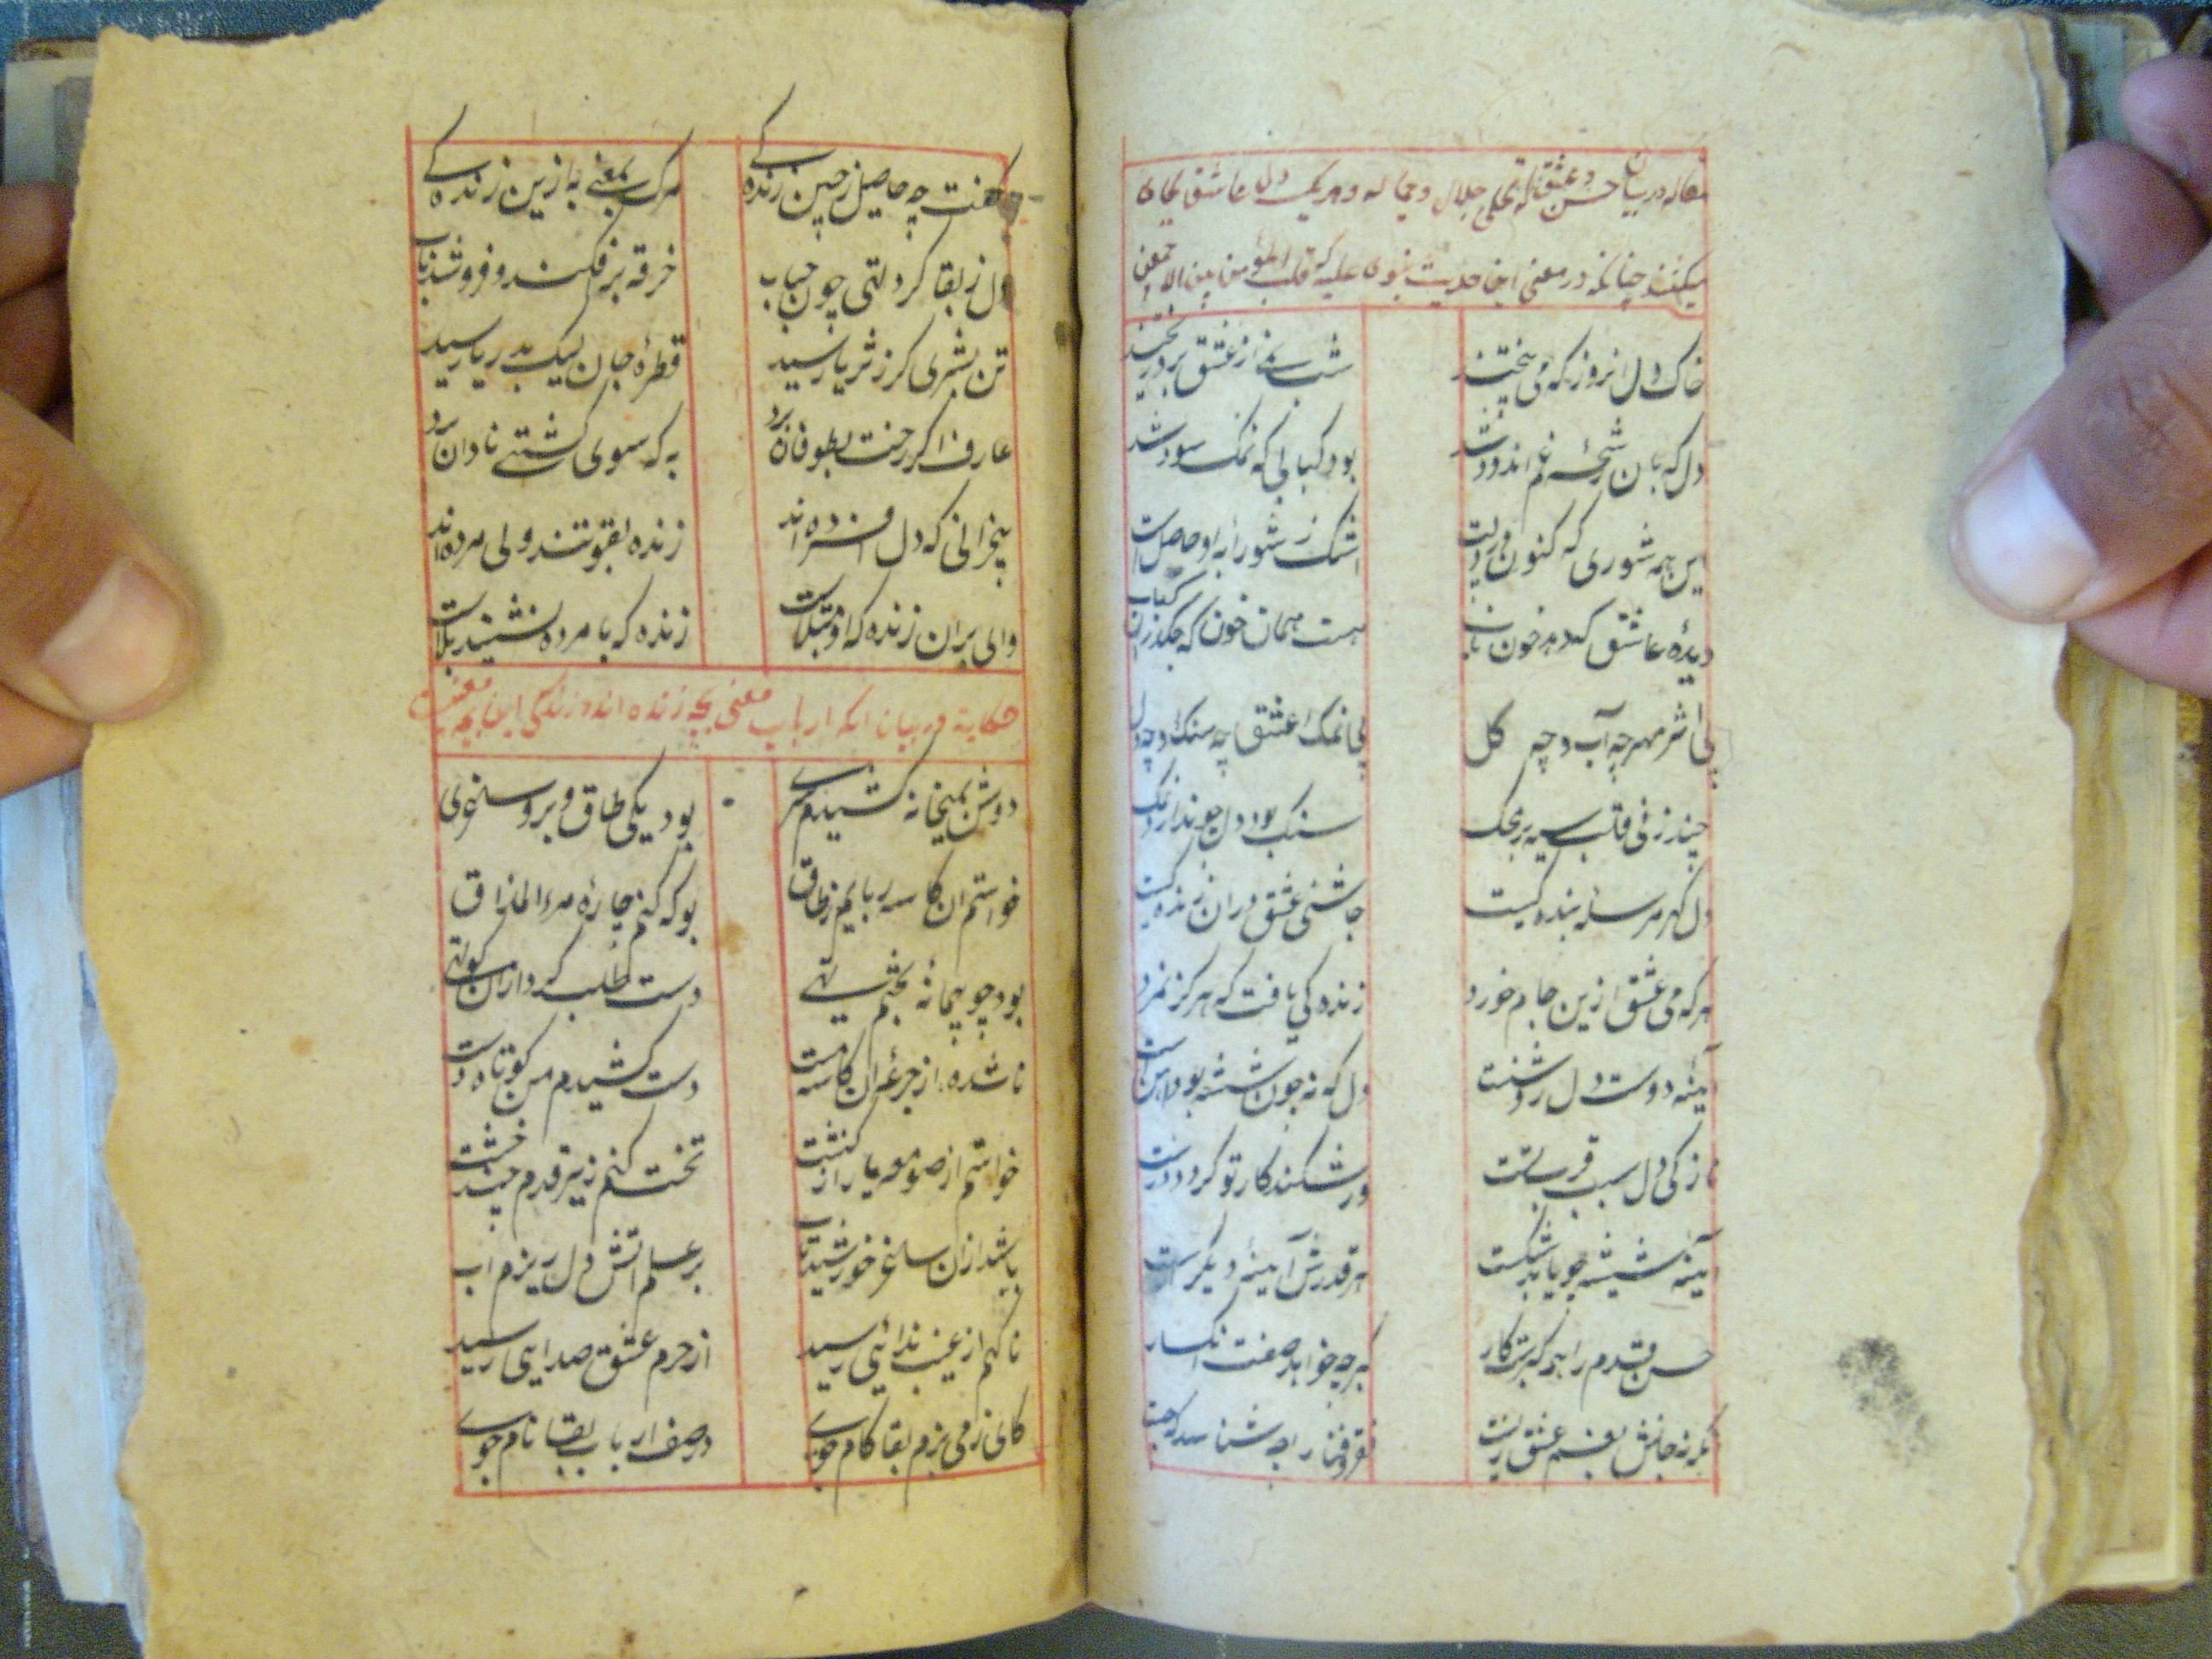 مقاله در بیان حسن و عشق که تجلی جلال و جماله و هر یک دل عاشق
میکنند چنانکه در معنی این حدیث نبوی علیه که قلب المؤمن بین الاصبعین
خاک دل انروز که می بیختند شبنمی از عشق برو ریختند
دل که بان رشحۀ غم اندود شد بود کبابی که نمک سود شد
این همه شوری که کنون در دلت اشک ز شورابه او حاصل است
دیدۀ عاشق که دهد خون ناب هست همان خون که چکد از کباب
بی اثر مهر چه آب و چه کل بی نمک عشق چه سنک و چه دل
چند زنی قلب سیه بر محک سنک بود دل چو ندارد نمک
دل کهر مرسله بنده کیست چاشنی عشق در ان زنده کیست
هر که می عشق ازین جام خورد زنده کی یافت که هرکز نمرد
آینه دوست دل روشنت دل که نه چون شیشه بود اهن است
نازکی دل سبب قرب تست ور شکند کار تو کردد درست
آینه شیشه چو یابد شکست هر قدرش آینۀ دیکر است
حسن قدم را همه کبرست کار کبر چه خواهد صفت انکسار
کرنه جانش بغم عشق زیست فقر و فنا را چه شناسد که چیست
گفت چه حاصل ز چنین زنده کے مرک بمعنی به ازین زنده کے
دل ز بقا کرد تهی چون حباب خرقه برفکند و فرو شد باب
تن بثری کر ز ثریا رسید قطرۀ جان لیک بدریا رسید
عارف اکر رخت بطوفان برد به که سوی کشتے نادان برد
بیخبرانی که دل افسرده اند زنده بقوتند ولی مرده اند
وای بران زنده که او مبتلاست زنده که با مرده نشیند بلاست
حکایة در بیان انکه ارباب معنی بچه زنده اند و زندکی این بچه معنیست
دوش بمیخانه کشیدم سرے بود یکی طاق و برو ساغری
خواستم ان کاسه ربایم ز طاق بو که کنم چارۀ مر المذاق
بود چو پیمانه بچشم تهے دست طلب کرد ازان کوتهے
ناشده از جرعۀ ان کاسه مست دست کشیدم من کوتاه دست
خواستم از صومعه یا از کنشت تخت کنم زیر قدم چند خشت
باشد ازان ساغر خورشید تاب بر علم اتش دل ریزم اب
ناکهم از غیب ندایی رسید از حرم عشق صدایی رسید
کای ز می بزم بقا کام جوے وصف ارباب بقا نام جوے